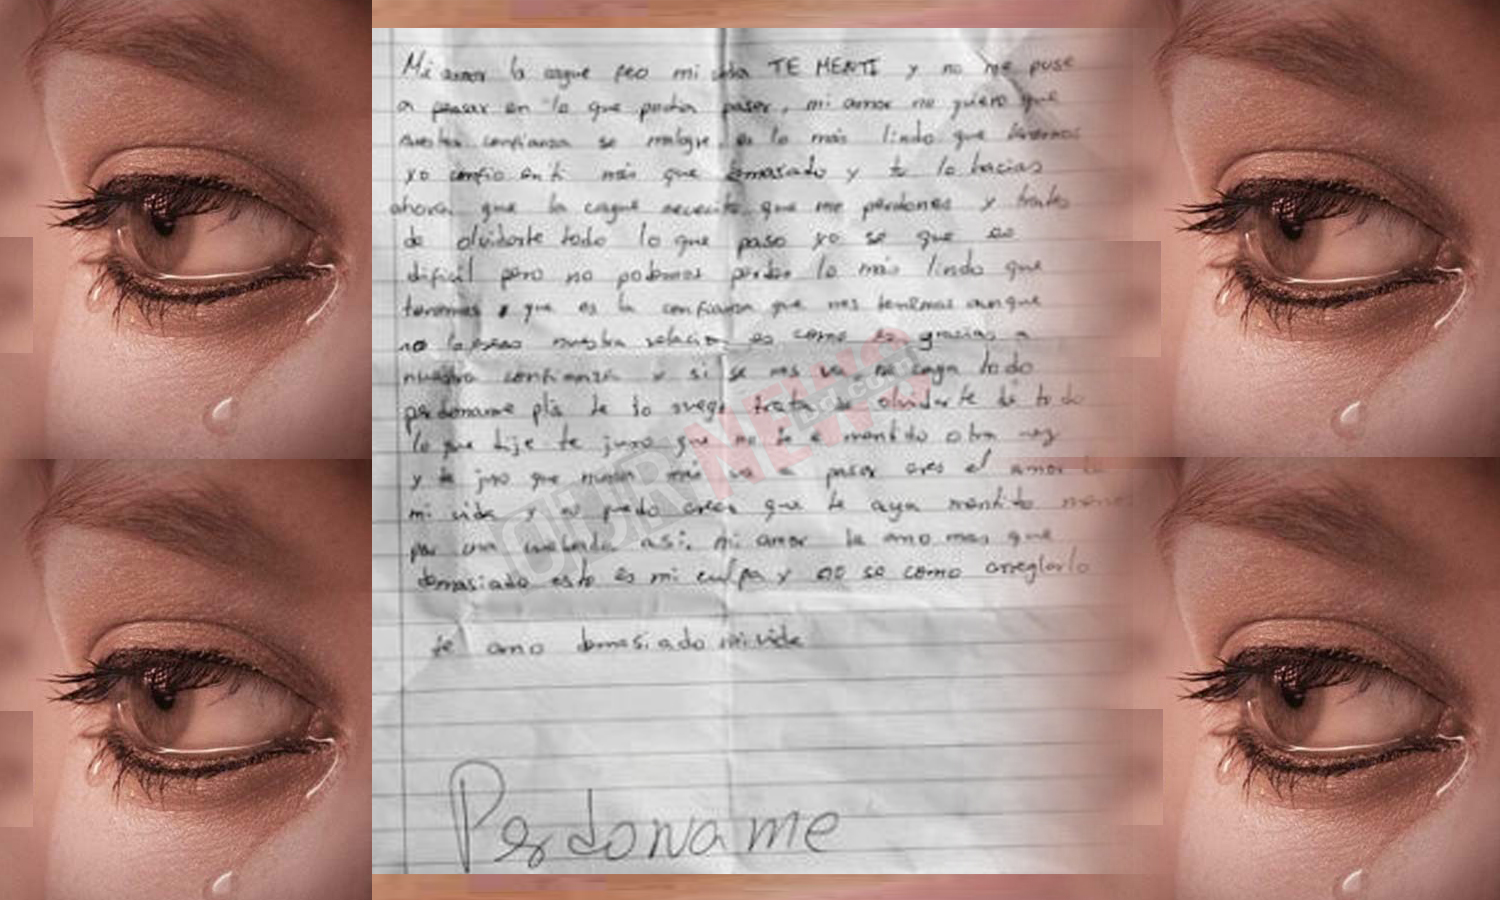 Mi amor la cague feo mi vida TE MENTI y no me puse
a pensar en lo que podia pasar, mi amor no quiero que
nuestra confianza se malogre, es lo más lindo que tenemos
yo confio en ti más que demasiado y tu lo hacias
ahora que la cague necesito que me perdones y trates
de olvidarte todo lo que paso yo se que es
dificil pero no podemos perder lo más lindo que
tenemos y que es la confianza que nos tenemos aunque
no lo nuestra relacion es como es gracias a
nuestra confianza y si se nos va, se caga todo
perdoname pls te lo ruego trata de olvidarte de todo
lo que dije te juro que no te e mentido otra vez
y te juro que nunca más va a pasar eres el amor de
mi vida y no puedo creer que te aya mentito
por una así. mi amor te amo mas que
demasiado esto es mi culpa y no se como arreglarlo
te amo demasiado mi vida
Perdoname
OUR NEWS